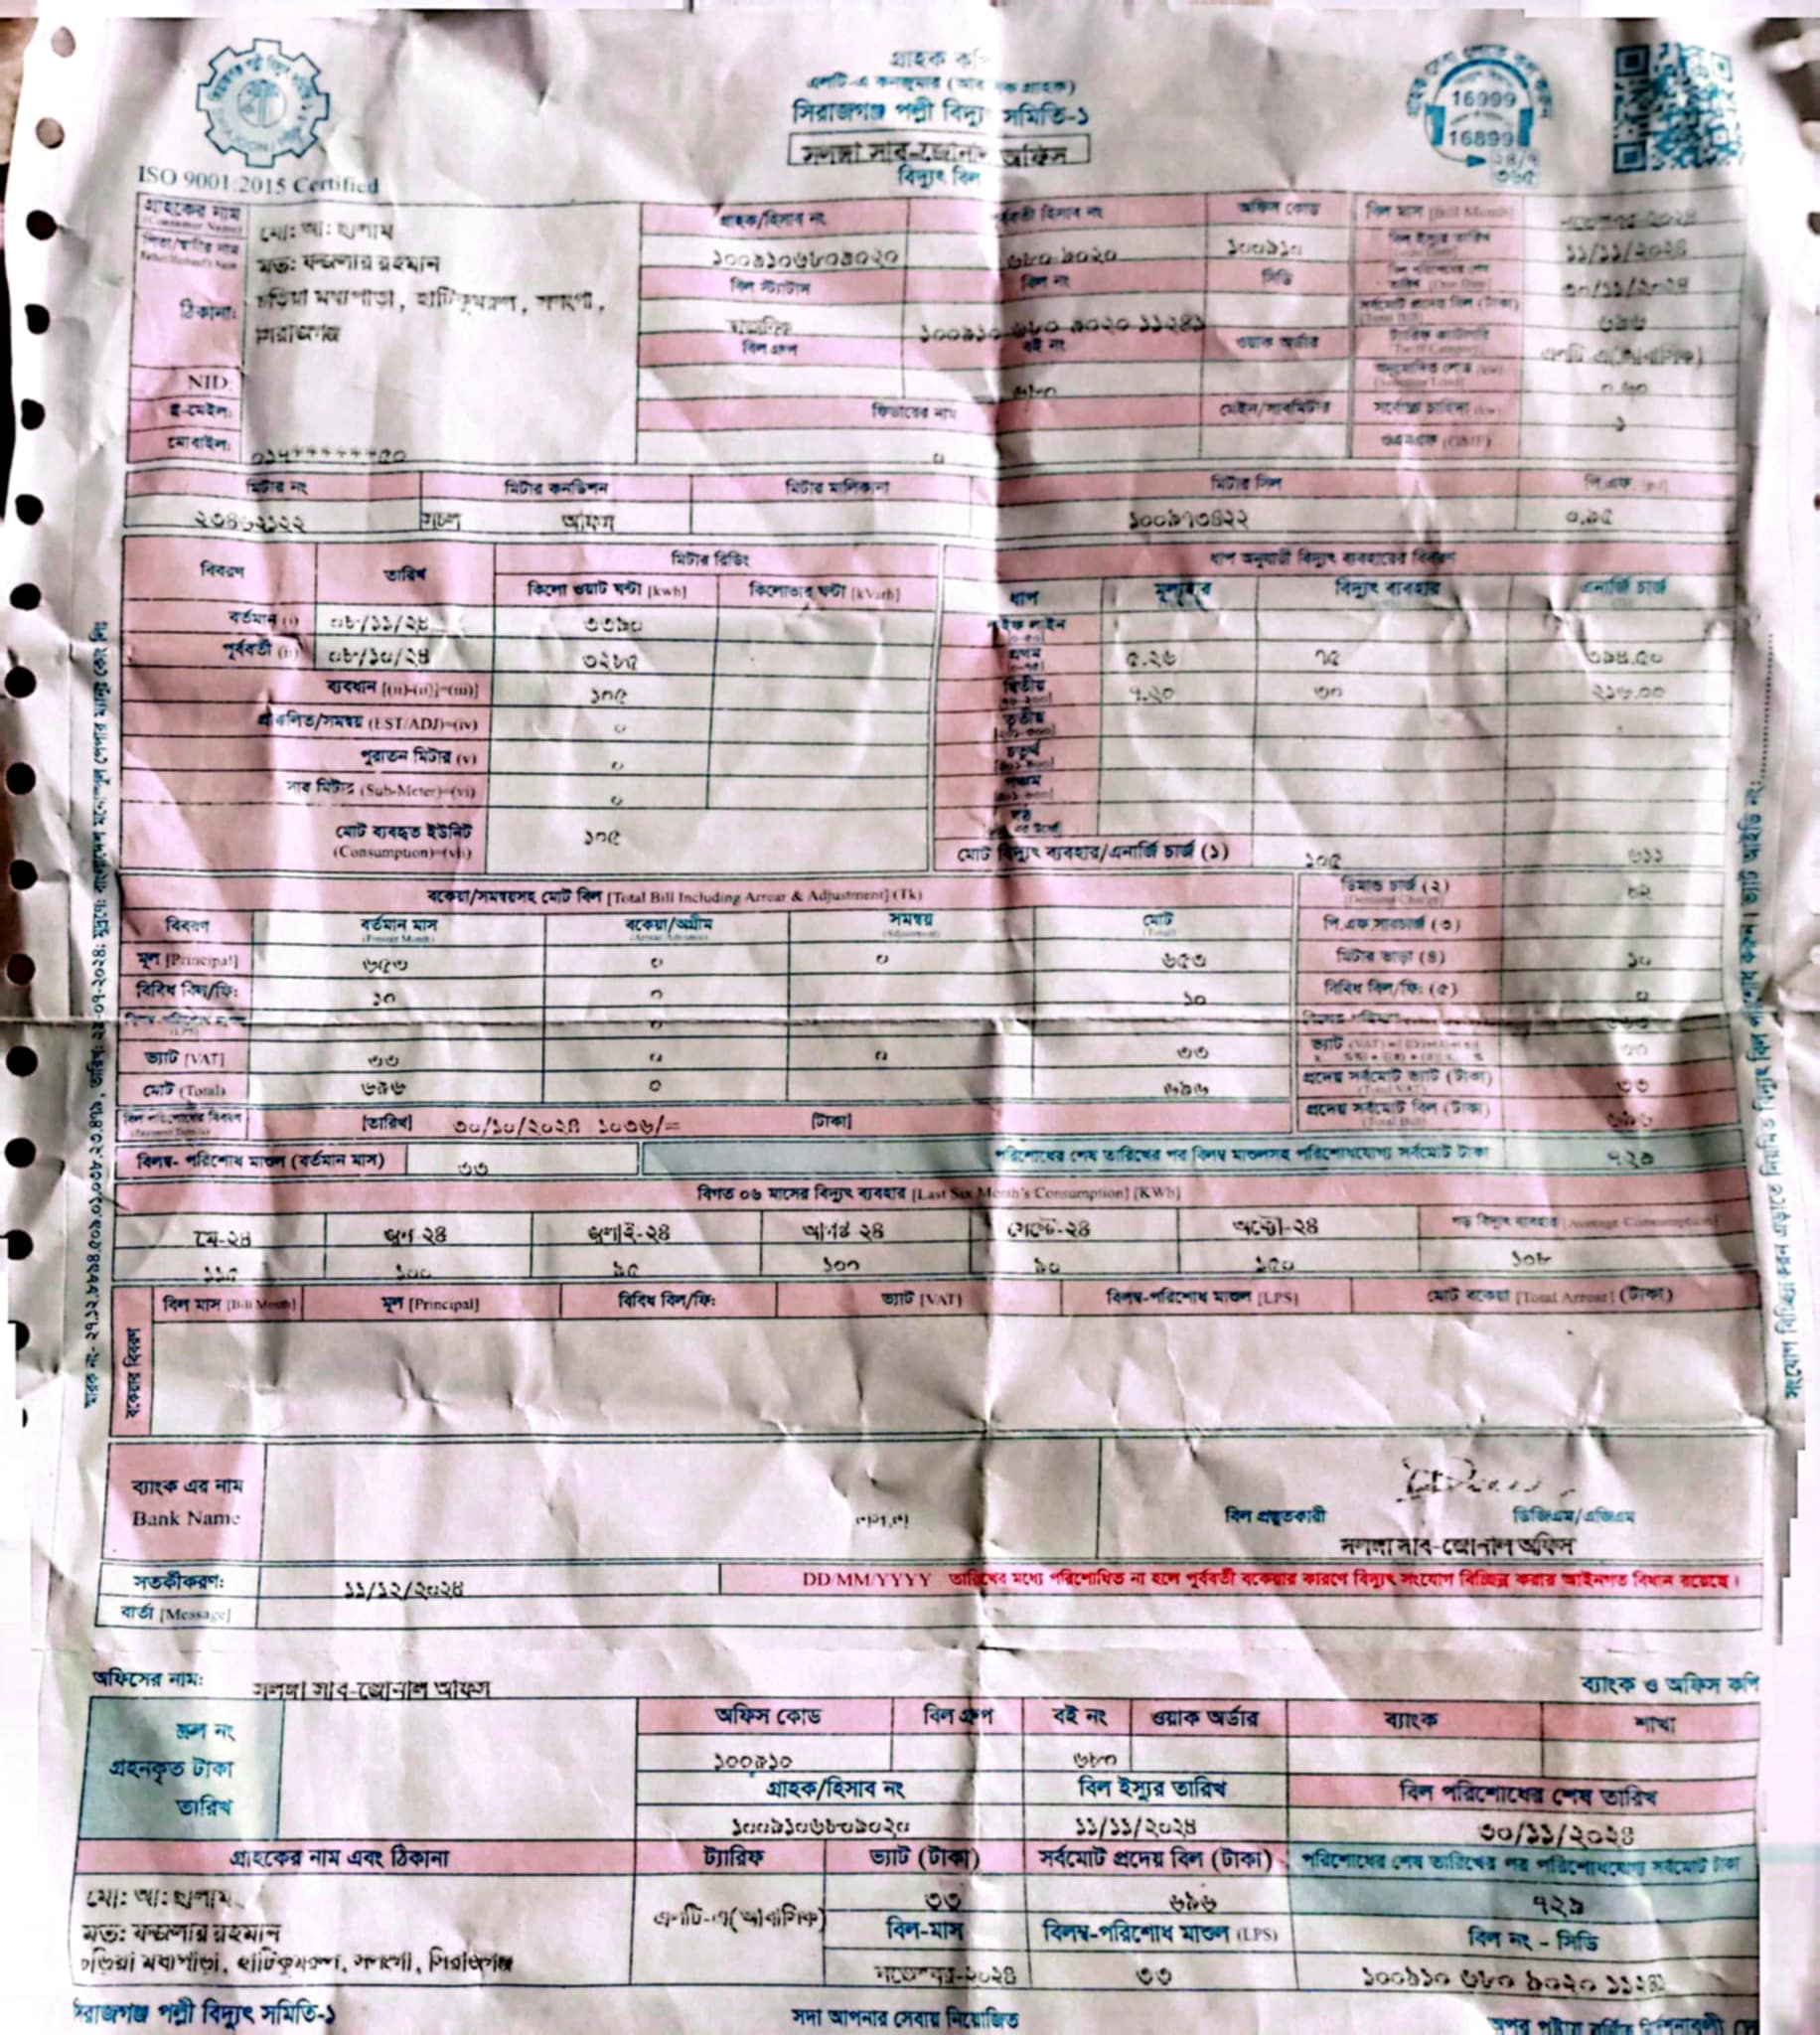 গ্রাহক কপি
এলটি-এ কনজুমার (আবাসিক গ্রাহক)
সিরাজগঞ্জ পল্লী বিদ্যুৎ সমিতি-১
সলঙ্গা সাব-জোনাল অফিস
বিদ্যুৎ বিল
16999
16899
ISO 9001:2015 Certified
গ্রাহকের নাম মো: আ: ছালাম
মৃত: ফজলার রহমান
ঠিকানা: চড়িয়া মধ্যপাড়া, হাটিকুমরুল, সলংগা,
সিরাজগঞ্জ
NID:
ই-মেইল:
মোবাইল: ০১৭*******৫০
গ্রাহক/হিসাব নং পূর্ববর্তী হিসাব নং অফিস কোড বিল মাস [Bill Month] নভেম্বর-২০২৪
১০০৯১০৬৮০৯০২০ ৬৮০ ৯০২০ ১০০৯১০ বিল ইস্যুর তারিখ ১১/১১/২০২৪
বিল স্ট্যাটাস বিল নং সিডি ৩০/১১/২০২৪
সর্বমোট প্রদেয় বিল (টাকা) ৬৯৬
১০০৯১০ ৬৮০ ৯০২০ ১১২৪১
বিল গ্রুপ বই নং ওয়াক অর্ডার এলটি-এ(আবাসিক)
৬৮০
ফিডারের নাম মেইন/সাবমিটার সর্বোচ্চ চাহিদা ১
০ ওএমএফ (OMF)
মিটার নং মিটার কনডিশন মিটার মালিকানা মিটার সিল পি.এফ.
২৩৪৬২১২২ সচল অফিস ১০০৯৭৩৪২২ ০.৯৫
বিবরণ তারিখ মিটার রিডিং
কিলো ওয়াট ঘন্টা [kwh] কিলোভার ঘন্টা [kVarh]
বর্তমান (i) ০৮/১১/২৪ ৩৩৯০
পূর্ববর্তী (ii) ০৮/১০/২৪ ৩২৮৫
ব্যবধান [(i)-(ii)]=(iii) ১০৫
প্রাক্কলিত/সমন্বয় (EST/ADJ)=(iv) ০
পুরাতন মিটার (v) ০
সাব মিটার (Sub-Meter)=(vi) ০
মোট ব্যবহৃত ইউনিট ১০৫
(Consumption)=(vii)
ধাপ অনুযায়ী বিদ্যুৎ ব্যবহারের বিবরণ
ধাপ মূল্যহার বিদ্যুৎ ব্যবহার এনার্জি চার্জ
লাইফ লাইন
প্রথম ৫.২৬ ৭৫ ৩৯৪.৫০
দ্বিতীয় ৭.২০ ৩০ ২১৬.০০
তৃতীয়
চতুর্থ
পঞ্চম
মোট বিদ্যুৎ ব্যবহার/এনার্জি চার্জ (১) ১০৫ ৬১১
বকেয়া/সমন্বয়সহ মোট বিল [Total Bill Including Arrear & Adjustment] (Tk)
বিবরণ বর্তমান মাস বকেয়া/অগ্রীম সমন্বয় মোট
মূল [Principal] ৬৫৩ ০ ০ ৬৫৩
বিবিধ বিল/ফি: ১০ ০ ১০
০
ভ্যাট [VAT] ৩৩ ০ ০ ৩৩
মোট (Total) ৬৯৬ ০ ৬৯৬
ডিমান্ড চার্জ (২) ৪২
পি.এফ.সারচার্জ (৩)
মিটার ভাড়া (৪) ১০
বিবিধ বিল/ফি: (৫) ০
প্রদেয় সর্বমোট ভ্যাট (টাকা) ৩৩
প্রদেয় সর্বমোট বিল (টাকা) ৬৯৬
বিল পরিশোধের বিবরণ [তারিখ] ৩০/১০/২০২৪ ১০৩৬/= [টাকা]
বিলম্ব- পরিশোধ মাশুল (বর্তমান মাস) ৩৩ পরিশোধের শেষ তারিখের পর বিলম্ব মাশুলসহ পরিশোধযোগ্য সর্বমোট টাকা ৭২৯
বিগত ০৬ মাসের বিদ্যুৎ ব্যবহার [Last Six Month's Consumption] [KWh]
মে-২৪ জুন-২৪ জুলাই-২৪ আগষ্ট-২৪ সেপ্টে-২৪ অক্টো-২৪ গড় বিদ্যুৎ ব্যবহার [Average Consumption]
১১৫ ১০০ ৯৫ ১০০ ৯০ ১৫০ ১০৮
বকেয়ার বিবরণ
বিল মাস [Bill Month] মূল [Principal] বিবিধ বিল/ফি: ভ্যাট [VAT] বিলম্ব-পরিশোধ মাশুল [LPS] মোট বকেয়া [Total Arrear] (টাকা)
ব্যাংক এর নাম
Bank Name
বিল প্রস্তুতকারী ডিজিএম/এজিএম
সলঙ্গা সাব-জোনাল অফিস
সতর্কীকরণ: ১১/১২/২০২৪ DD/MM/YYYY তারিখের মধ্যে পরিশোধিত না হলে পূর্ববর্তী বকেয়ার কারণে বিদ্যুৎ সংযোগ বিচ্ছিন্ন করার আইনগত বিধান রয়েছে।
বার্তা [Message]
অফিসের নাম: সলঙ্গা সাব-জোনাল অফিস ব্যাংক ও অফিস কপি
স্ক্রল নং
গ্রহনকৃত টাকা
তারিখ
অফিস কোড বিল গ্রুপ বই নং ওয়াক অর্ডার ব্যাংক শাখা
১০০৯১০ ৬৮০
গ্রাহক/হিসাব নং বিল ইস্যুর তারিখ বিল পরিশোধের শেষ তারিখ
১০০৯১০৬৮০৯০২০ ১১/১১/২০২৪ ৩০/১১/২০২৪
গ্রাহকের নাম এবং ঠিকানা ট্যারিফ ভ্যাট (টাকা) সর্বমোট প্রদেয় বিল (টাকা) পরিশোধের শেষ তারিখের পর পরিশোধযোগ্য সর্বমোট টাকা
মো: আ: ছালাম এলটি-এ(আবাসিক) ৩৩ ৬৯৬ ৭২৯
মৃত: ফজলার রহমান বিল-মাস বিলম্ব-পরিশোধ মাশুল (LPS) বিল নং - সিডি
চড়িয়া মধ্যপাড়া, হাটিকুমরুল, সলংগা, সিরাজগঞ্জ নভেম্বর-২০২৪ ৩৩ ১০০৯১০ ৬৮০ ৯০২০ ১১২৪১
সিরাজগঞ্জ পল্লী বিদ্যুৎ সমিতি-১ সদা আপনার সেবায় নিয়োজিত